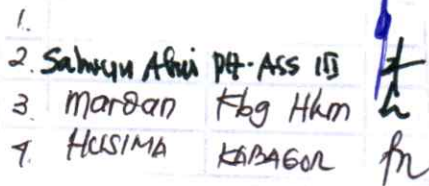 1.
2. Sahruyn Afrui Plt. Ass III
3. Mardan Kbg Hkm
4. HUSIMA KABAGOR